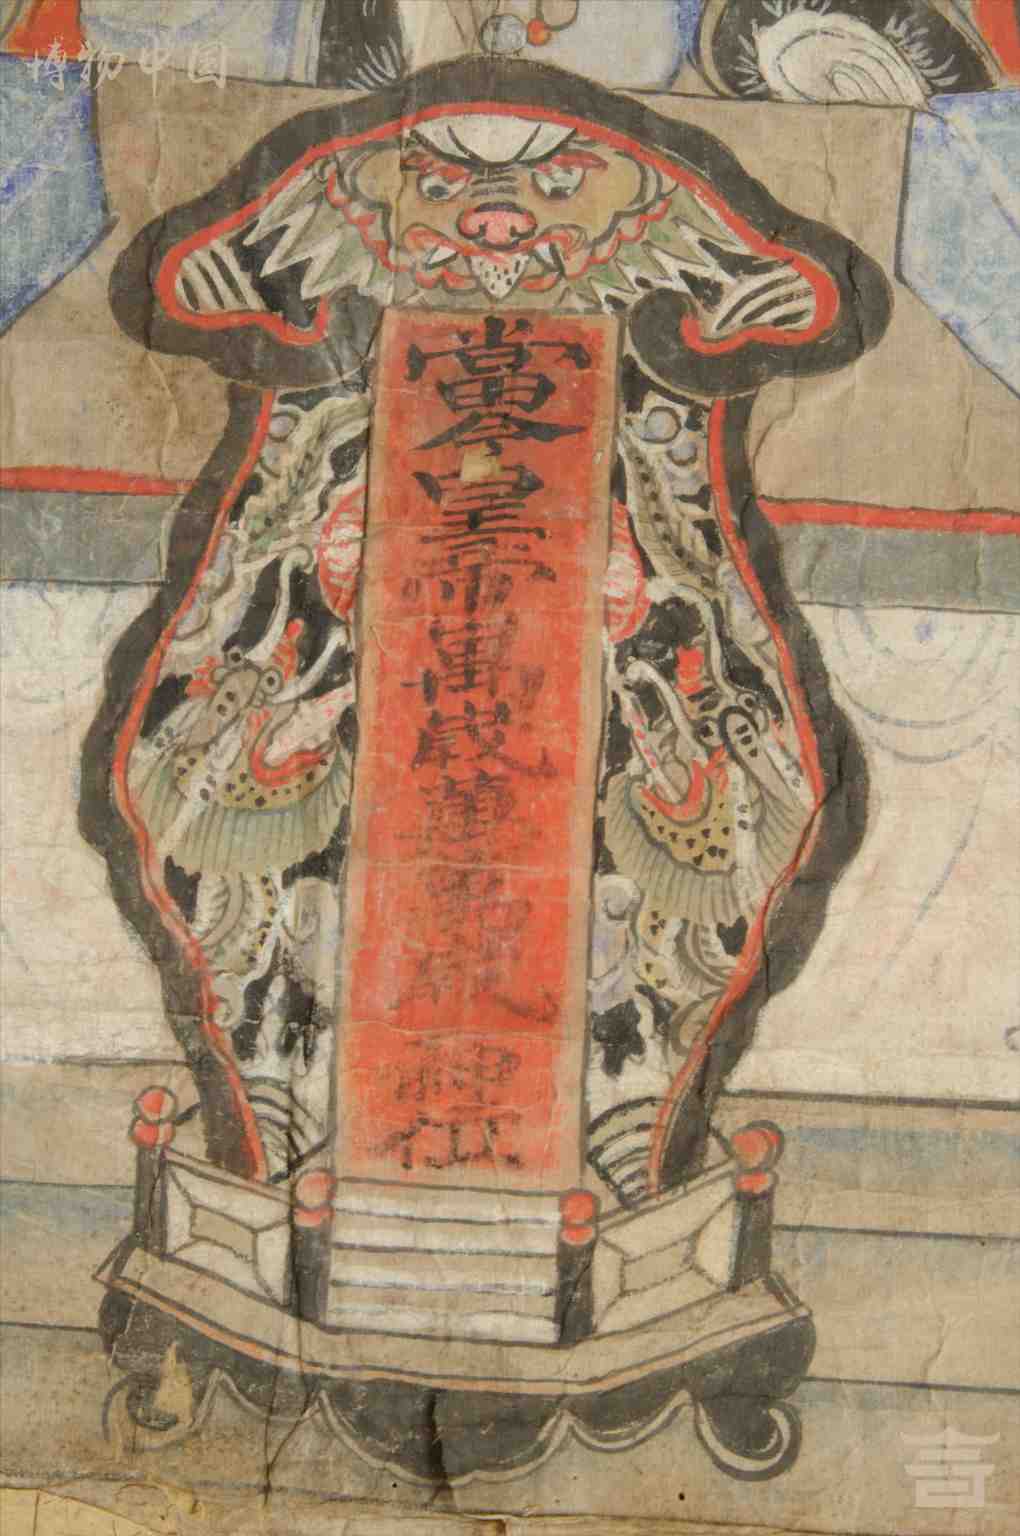 博物中国
當今皇帝萬歲萬萬歲神位